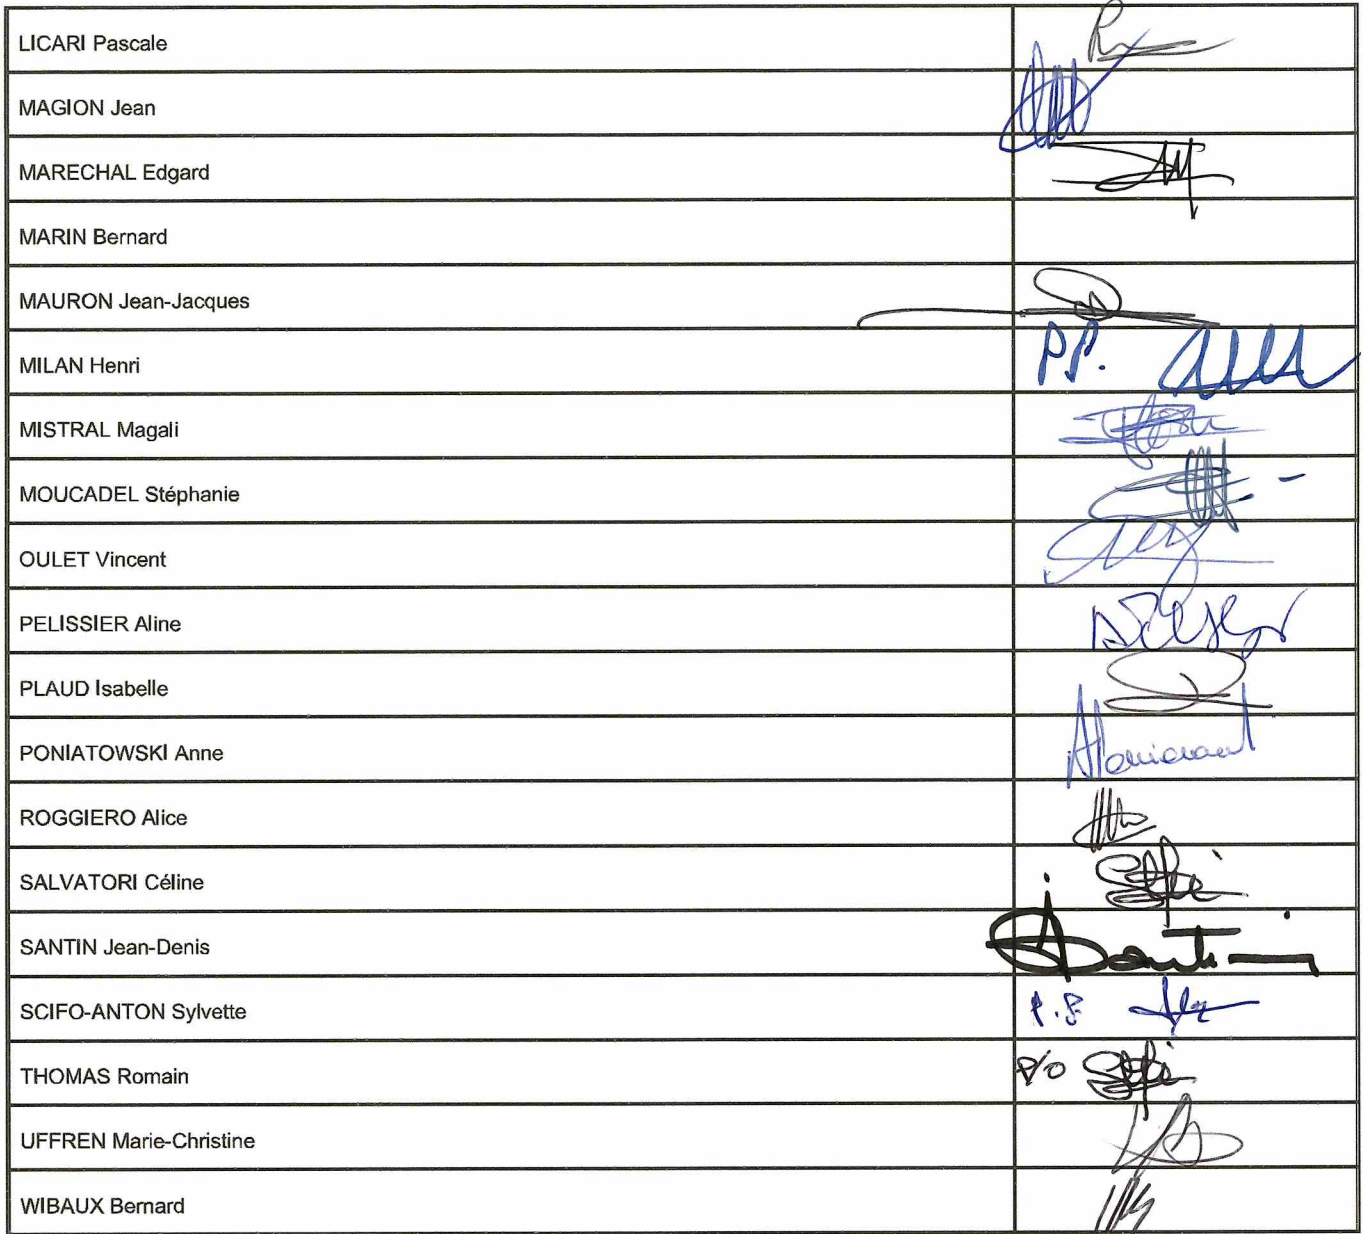 LICARI Pascale
MAGION Jean
MARECHAL Edgard
MARIN Bernard
MAURON Jean-Jacques
MILAN Henri P.P.
MISTRAL Magali
MOUCADEL Stéphanie
OULET Vincent
PELISSIER Aline
PLAUD Isabelle
PONIATOWSKI Anne
ROGGIERO Alice
SALVATORI Céline
SANTIN Jean-Denis
SCIFO-ANTON Sylvette
THOMAS Romain P/O
UFFREN Marie-Christine
WIBAUX Bernard